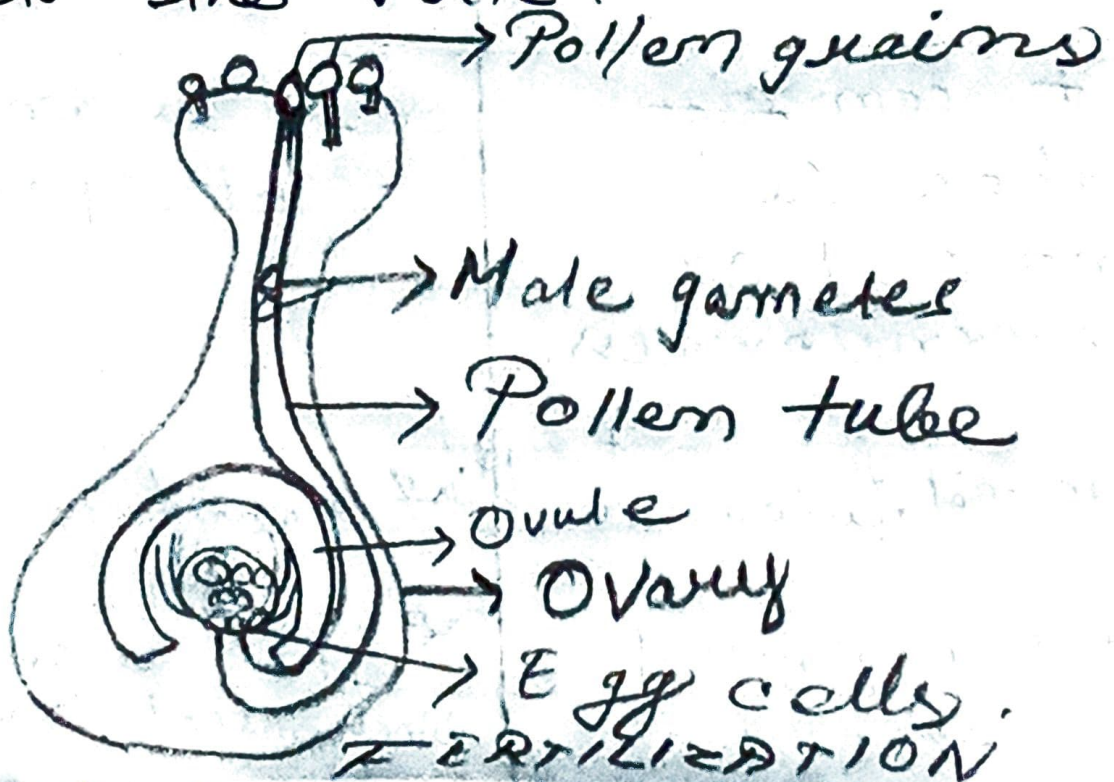 Pollen grains
Male gametes
Pollen tube
Ovule
Ovary
Egg cells.
FERTILIZATION